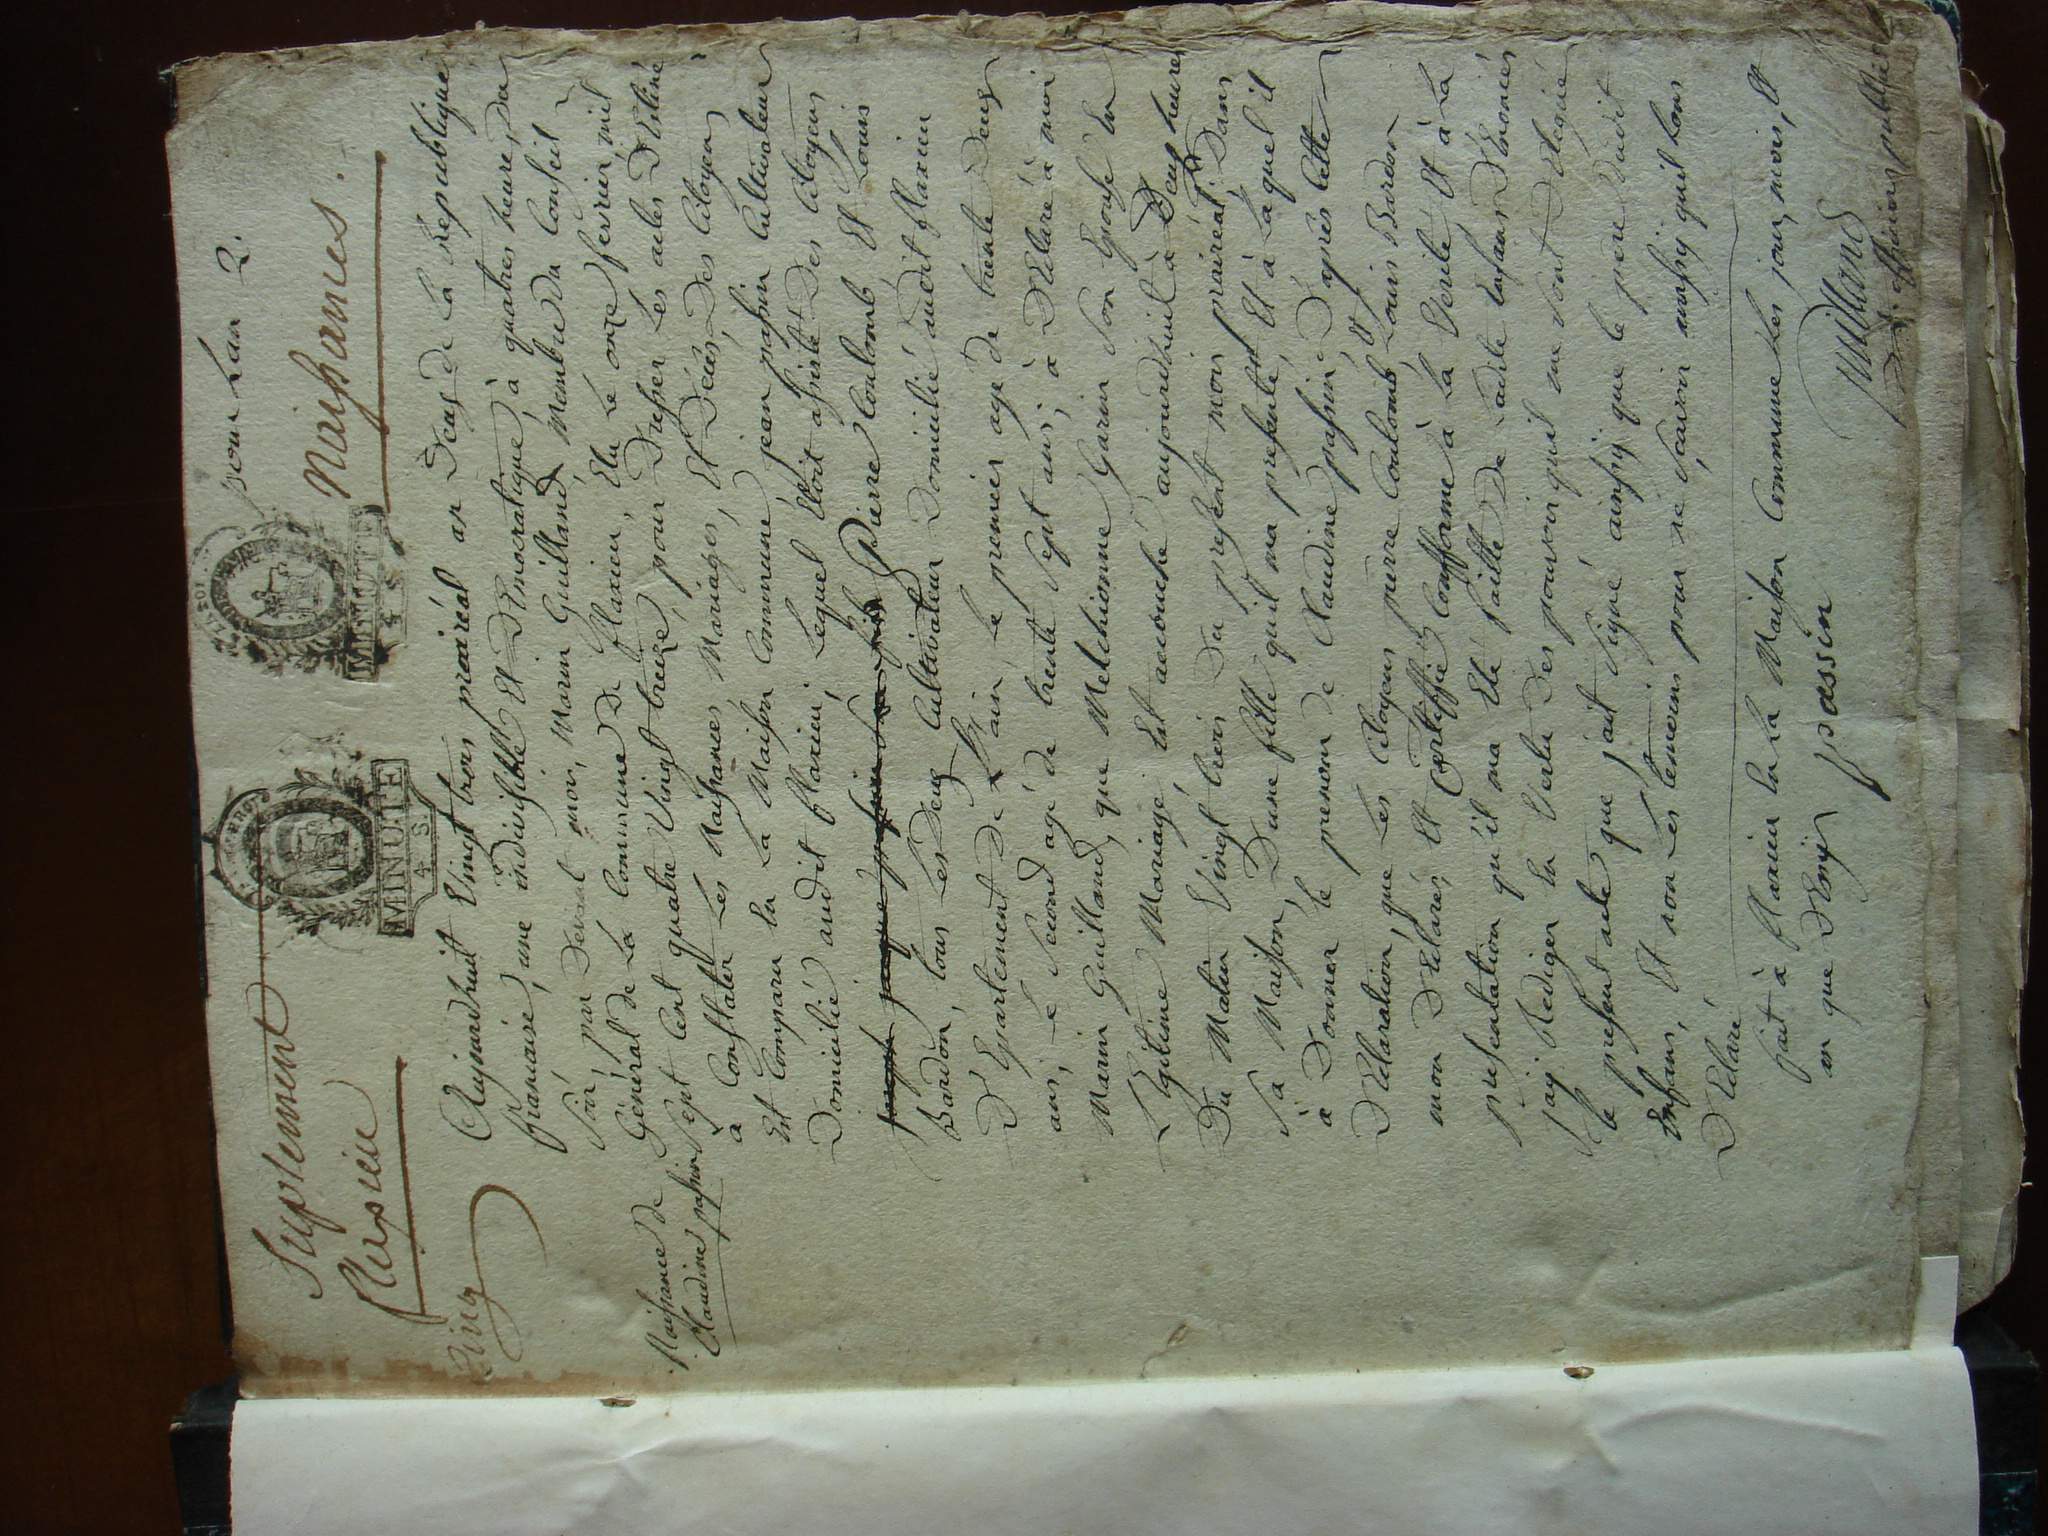 Suplement
pour Lan 2.
Fluxieu
Naissances.
TIMBRE
MINUTE
4 S
MINUTE
4 S
Cinq
Aujourdhuit Vingt trois prairéal an Deux de La Republique
francaise, une indivisible Et Démocratique, à quatres heure, du
Soir, par devant moi, Marin Guilland, Membre du Conseil
Général de La Commune De flaxieu, Elu Le onze fevrier mil
Sept Cent quatre Vingt treize, pour Dresser Les actes D'Etiné
Naissance de
Claudine passin
à Constater Les Naissances Mariages, Et Décés, Des Citoyens
Est Comparu En La Maison Commune jean passin Cultivateur
Domicilié audit flaxieu, Lequel Etoit assisté Des Citoyens
Pierre Coulomb Et Louis
Bardon, tous Les Deux Cultivateur Domicilié audit flaxieu
D'Epartement de L'ain Le premier agé de trente Deux
ans, Le Second agé de trente Sept ans, à D'Eclaré à moi
Marin Guilland, que Melchionne Garin Son Epouse En
L'Egitime Mariage, Est accouché aujourdhuit à Deux heures
Du Matin Vingt trois Du present mois prairéal, Dans
Sa Maison, D'une fille quil ma presenté, Et à La quel il
à Donner le prenom de Claudine passin, D'après Cette
D'Eclaration, que Les Citoyens pierre Coulomb, Louis Bardon
mon D'Eclarés, Et Certiffié Confforme à La Verité Et à La
presentation qu'il ma Eté faitte De Ladite Enfans D'Enoncés
jaÿ Rediger En Vertu Des pouvoir quil me Sont D'elegué
le present acte que jait Signé ainsÿ que le pere Dudit
Enfans, Et non Les temoins pour ne Sçavoir ainsÿ quil Lons
D'Eclaré
fait à flaxieu En La Maison Commune Les jour, mois, Et
an que D'Ensus
passin
Guilland
officier public